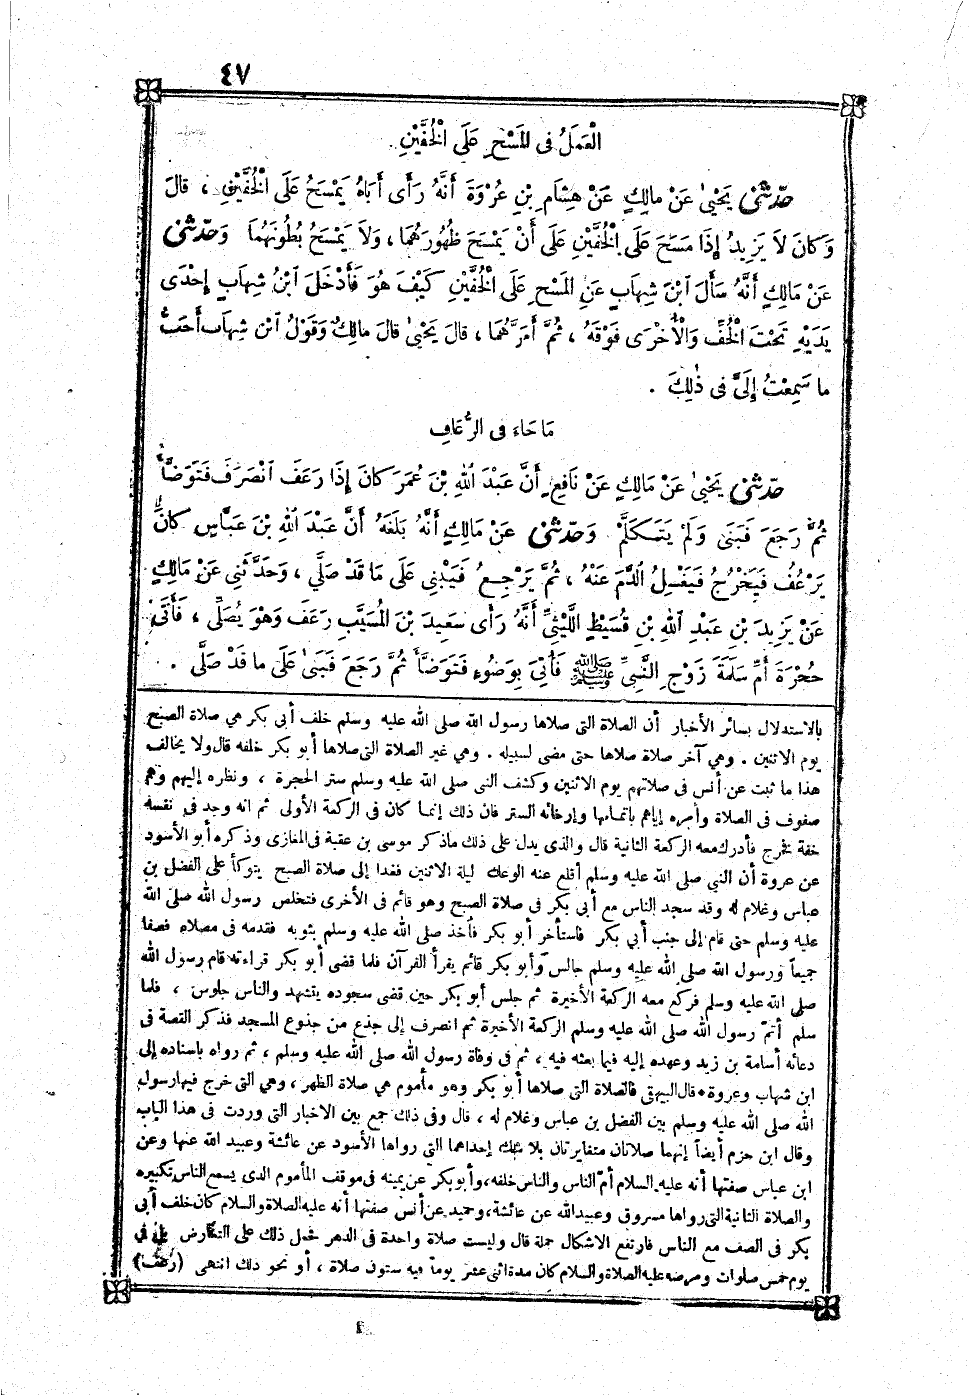 ٤٧
الْعَمَلُ فِى الْمَسْحِ عَلَى الْخُفَّيْنِ
حدّثنى يَحْيٰى عَنْ مالِكٍ عَنْ هِشَامِ بْنِ عُرْوَةَ أَنَّهُ رَأَى أَبَاهُ يَمْسَحُ عَلَى الْخُفَّيْنِ ، قالَ
وَكانَ لاَ يَزِيدُ إِذَا مَسَحَ عَلَى الْخُفَّيْنِ عَلَى أَنْ يَمْسَحَ ظُهُورَهُمَا ، وَلاَ يَمْسَحُ بُطُونَهُمَا وَحدّثنى
عَنْ مَالِكٍ أَنَّهُ سَأَلَ ابْنَ شِهَابٍ عَنِ الْمَسْحِ عَلَى الْخُفَّيْنِ كَيْفَ هُوَ فَأَدْخَلَ ابْنُ شِهَابٍ إِحْدَى
يَدَيْهِ تَحْتَ الْخُفِّ وَالْأُخْرَى فَوْقَهُ ، ثُمَّ أَمَرَّهُمَا ، قالَ يَحْيٰى قالَ مالِكٌ وَقَوْلُ ابْنِ شِهَابٍ أَحَبُّ
ما سَمِعْتُ إِلَىَّ فِى ذٰلِكَ .
مَا جَاءَ فِى الرُّعَافِ
حدّثنى يَحْيٰى عَنْ مَالِكٍ عَنْ نَافِعٍ أَنَّ عَبْدَ اللهِ بْنَ عُمَرَ كانَ إِذَا رَعَفَ انْصَرَفَ فَتَوَضَّأَ
ثُمَّ رَجَعَ فَبَنَى وَلَمْ يَتَكَلَّمْ وَحدّثنى عَنْ مَالِكٍ أَنَّهُ بَلَغَهُ أَنَّ عَبْدَ اللهِ بْنَ عَبَّاسٍ كانَ
يَرْعُفُ فَيَخْرُجُ فَيَغْسِلُ الدَّمَ عَنْهُ ، ثُمَّ يَرْجِعُ فَيَبْنِى عَلَى مَا قَدْ صَلَّى ، وَحَدَّثَنِى عَنْ مَالِكٍ
عَنْ يَزِيدَ بْنِ عَبْدِ اللهِ بْنِ قُسَيْطٍ اللَّيْثِىِّ أَنَّهُ رَأَى سَعِيدَ بْنَ الْمُسَيَّبِ رَعَفَ وَهْوَ يُصَلِّى ، فَأَتَى
حُجْرَةَ أُمِّ سَلَمَةَ زَوْجِ النَّبِىِّ ﷺ فَأُتِىَ بِوَضُوءٍ فَتَوَضَّأَ ثُمَّ رَجَعَ فَبَنَى عَلَى ما قَدْ صَلَّى .
بالاستدلال بسائر الأخبار أن الصلاة التى صلاها رسول الله صلى الله عليه وسلم خلف أبى بكر هى صلاة الصبح
يوم الاثنين . وهى آخر صلاة صلاها حتى مضى لسبيله . وهى غير الصلاة التى صلاها أبو بكر خلفه قال ولا يخالف
هذا ما ثبت عن أنس فى صلاتهم يوم الاثنين وكشف النبى صلى الله عليه وسلم ستر الحجرة ، ونظره إليهم وهم
صفوف فى الصلاة وأمره إياهم بإتمامها وإرخائه الستر فان ذلك إنما كان فى الركعة الأولى ثم انه وجد فى نفسه
خفة فخرج فأدرك معه الركعة الثانية قال والذى يدل على ذلك ماذكر موسى بن عقبة فى المغازى وذكره أبو الأسود
عن عروة أن النبى صلى الله عليه وسلم أقلع عنه الوعك ليلة الاثنين فغدا إلى صلاة الصبح يتوكأ على الفضل بن
عباس وغلام له وقد سجد الناس مع أبى بكر فى صلاة الصبح وهو قائم فى الأخرى فتخلص رسول الله صلى الله
عليه وسلم حتى قام إلى جنب أبى بكر فاستأخر أبو بكر فأخذ صلى الله عليه وسلم بثوبه فقدمه فى مصلاه فصفا
جميعاً ورسول الله صلى الله عليه وسلم جالس وأبو بكر قائم يقرأ القرآن فلما قضى أبو بكر قراءته قام رسول الله
صلى الله عليه وسلم فركع معه الركعة الأخيرة ثم جلس أبو بكر حين قضى سجوده يتشهد والناس جلوس ، فلما
سلم أتمّ رسول الله صلى الله عليه وسلم الركعة الأخيرة ثم انصرف إلى جذع من جذوع المسجد فذكر القصة فى
دعائه أسامة بن زيد وعهده إليه فيما بعثه فيه ، ثم فى وفاة رسول الله صلى الله عليه وسلم ، ثم رواه باسناده إلى
ابن شهاب وعروة • قال البيهقى فالصلاة التى صلاها أبو بكر وهو مأموم هى صلاة الظهر ، وهى التى خرج فيها رسول
الله صلى الله عليه وسلم بين الفضل بن عباس وغلام له ، قال وفى ذلك جمع بين الاخبار التى وردت فى هذا الباب
وقال ابن حزم أيضاً إنهما صلاتان متغايرتان بلا شك إحداهما التى رواها الأسود عن عائشة وعبيد الله عنها وعن
ابن عباس صفتها أنه عليه السلام أمّ الناس والناس خلفه ، وأبو بكر عن يمينه فى موقف المأموم الذى يسمع الناس تكبيره
والصلاة الثانية التى رواها مسروق وعبيد الله عن عائشة ، وحميد عن أنس صفتها أنه عليه الصلاة والسلام كان خلف أبى
بكر فى الصف مع الناس فارتفع الاشكال جملة قال وليست صلاة واحدة فى الدهر فحمل ذلك على التعارض بل فى
يوم خمس صلوات ومرضه عليه الصلاة والسلام كان مدة اثنى عشر يوماً فيه ستون صلاة ، أو نحو ذلك انتهى (رعف)